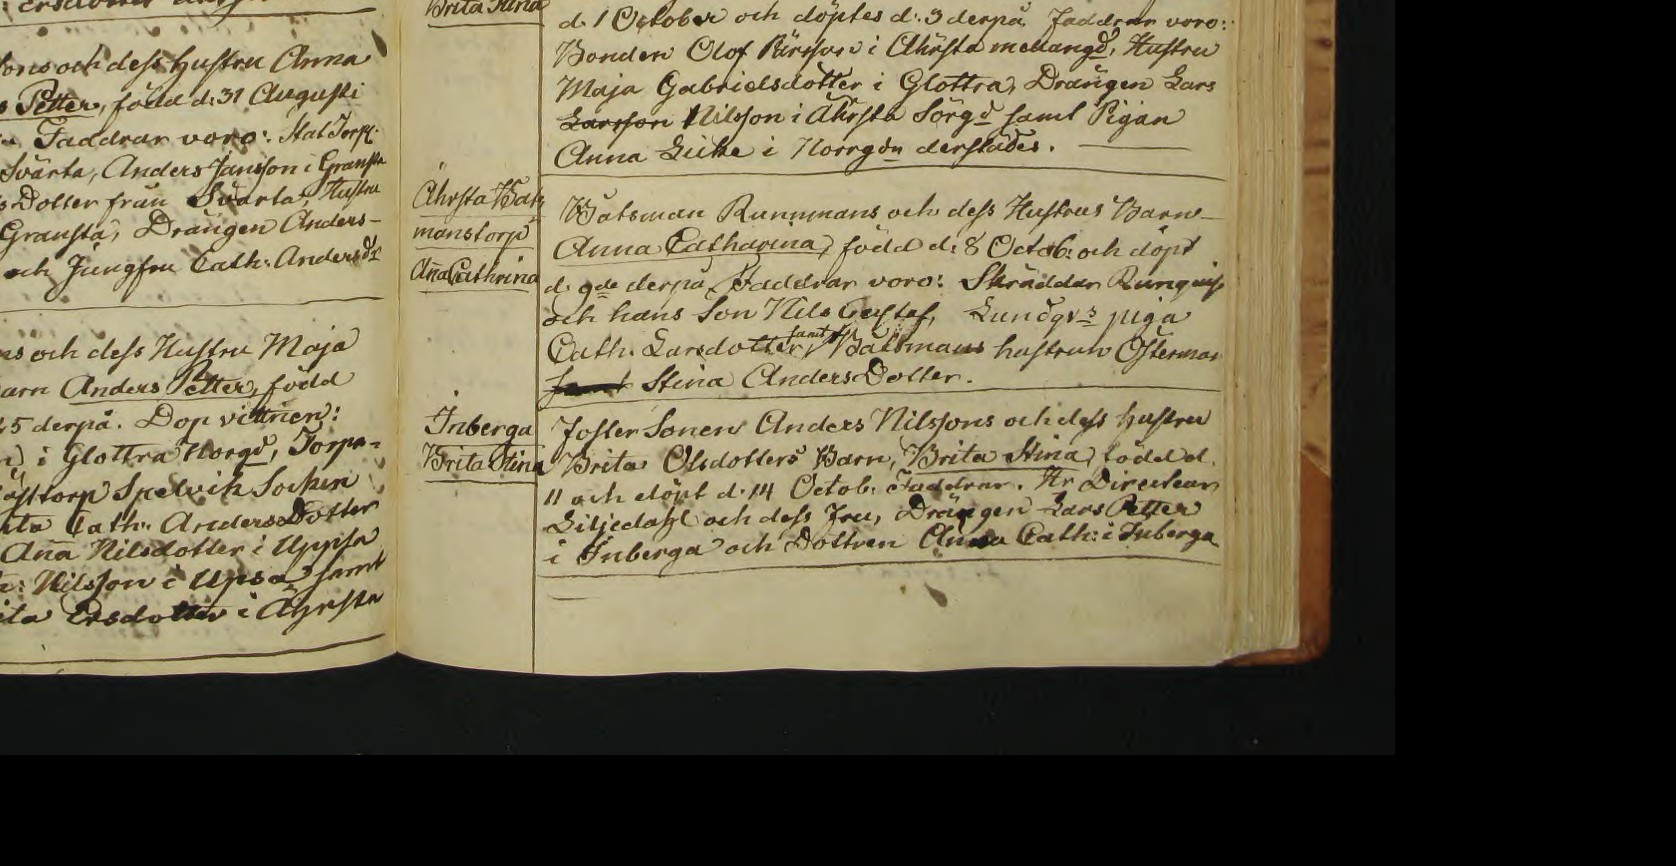 sons och dess Hustru Anna
Petter, född d: 31 Augusti
Faddrar voro: StatTorp:
Svärta, Anders Jansson i Gransta
Dotter från Svärta, Hustru
Gransta, Drängen Anders-
och Jungfru Cath: Andersdr
ns och dess Hustru Maja
arn Anders Petter, född
15 derpå. Dop vittnen:
i Glottra Norrgd, Torpa=
torp Spelvik Sochen
Cath: Anders Dotter
Ana Nilsdotter i Uppsa
Nilsson i Upsa samt
ita Ersdotter i Åhrsta
Brita Stina
d. 1 October och döptes d. 3 derpå. Faddrar voro:
Bonden Olof Pärsson i Åhrsta mellangd, Hustru
Maja Gabrielsdotter i Glottra, Drängen Lars
Larsson Nilsson i Åhrsta Sörgd samt Pigan
Anna Lis i Norrgdn derstädes.
Åhrsta Båts
manstorp
Ana Cathrina
Båtsman Runnmans och dess Hustrus Barn
Anna Catharina, född d: 8 Octob: och döpt
d. 9de derpå, Faddrar voro: Skräddar Runquist
och hans Son Nils Gustaf, Lundqvs piga
Cath: Larsdotter, samt Båtsmans hustrun Österman
samt Stina Anders Dotter.
Inberga
Brita Stina
Foster Sonen Anders Nilssons och dess hustru
Brita Olsdotters Barn, Brita Stina, född d.
11 och döpt d. 14 Octob: Faddrar. Hr Directeur
Liljedahl och dess Fru, Drängen Lars Petter
i Inberga och Dottren Anna Cath: i Inberga